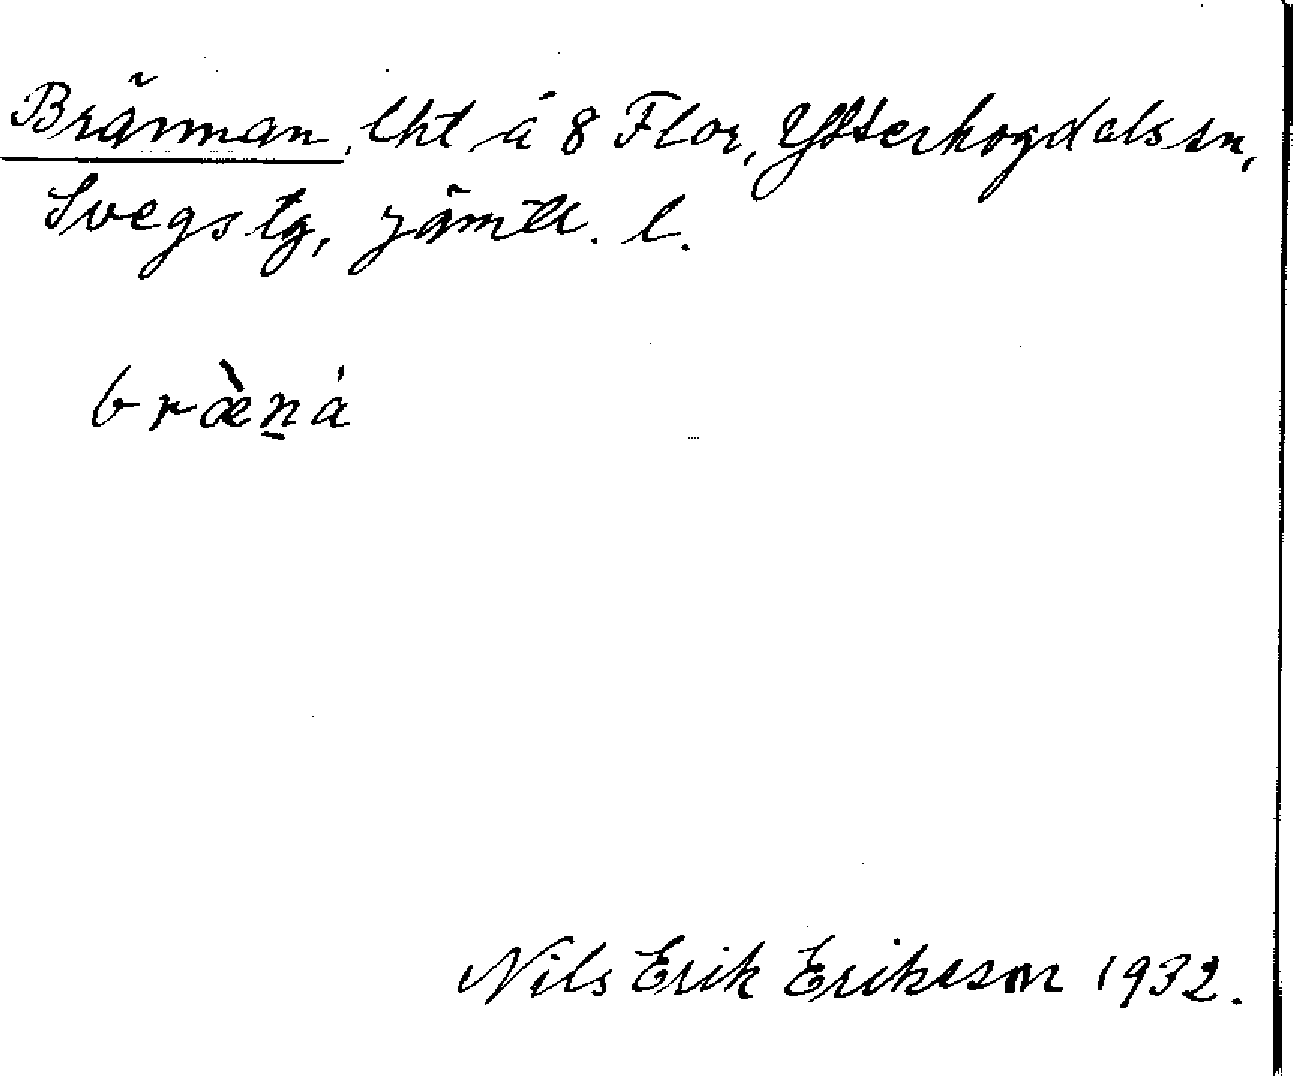 Brännan, lht å 8 Flor, Ytterhogdals sn,
Svegs tg, Jämtl. l.
bræ̀n̠á
Nils Erik Eriksson 1932.